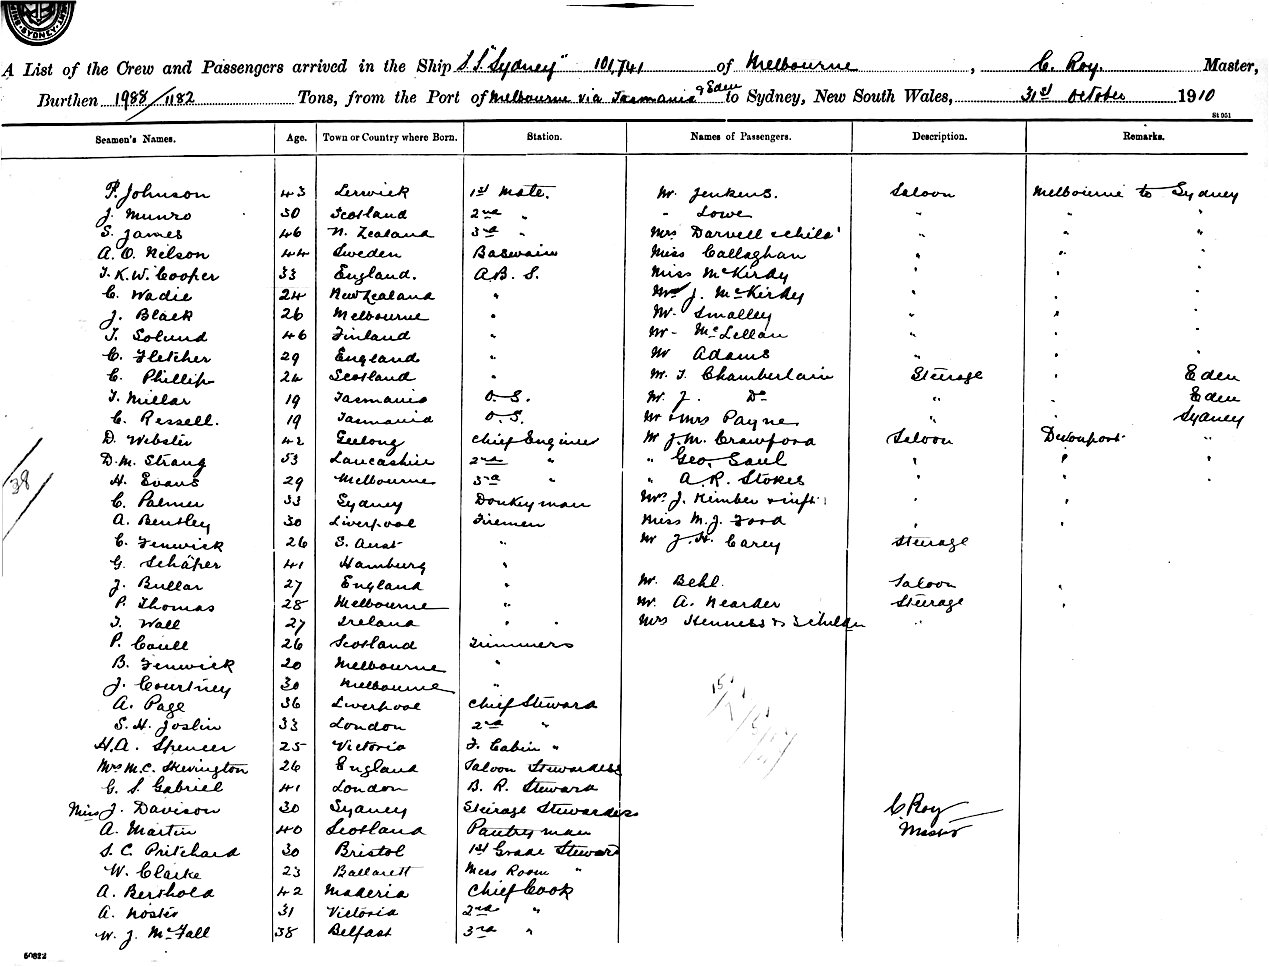 SYDNEY
A List of the Crew and Passengers arrived in the Ship S.S. "Sydney" 101,741 of Melbourne, C. Roy. Master,
Burthen 1988/1182 Tons, from the Port of Melbourne via Tasmania & Eden to Sydney, New South Wales, 31st October 1910
St 051
Seamen's Names. Age. Town or Country where Born. Station. Names of Passengers. Description. Remarks.
P. Johnson 43 Lerwick 1st Mate. Mr Jenkens. Saloon Melbourne to Sydney
J. Munro 30 Scotland 2nd " - Lowe " " "
S. James 46 N. Zealand 3rd " Mrs Darvell & child " " "
A. O. Nelson 44 Sweden Boswain Miss Callaghan " " "
T. K. W. Cooper 33 England. A.B. S. Miss McKirdy " " "
C. Wadie 24 New Zealand " Mr J. McKirdy " " "
J. Black 26 Melbourne " Mr Smalley " " "
T. Solund 46 Finland " Mr McLellan " " "
C. Fletcher 29 England " Mr Adams " " "
C. Phillip 24 Scotland " Mr T. Chamberlain Steerage " Eden
T. Millar 19 Tasmania O.S. Mr J. Do " " Eden
C. Ressell. 19 Tasmania O.S. Mr & Mrs Payne " Sydney
D. Webster 42 Geelong Chief Engineer Mr J. M. Crawford Saloon Devonport "
D. M. Strang 53 Lancashire 2nd " " Geo. Saul " " "
H. Evans 29 Melbourne 3rd " " A. R. Stokes " "
38
C. Palmer 33 Sydney Donkeyman Mrs J. Kimber & inft " "
A. Bentley 30 Liverpool Firemen Miss M. J. Ford " "
C. Fenwick 26 S. Aust " Mr J. H. Carey Steerage
G. Schäper 41 Hamburg "
J. Bullar 27 England " Mr. Behl. Saloon "
P. Thomas 28 Melbourne " Mr. A. Nearder Steerage "
T. Wall 27 Ireland " " Mrs Henness & 3 children "
P. Caull 26 Scotland Trimmers
B. Fenwick 20 Melbourne "
J. Courtney 30 Melbourne "
A. Page 36 Liverpool Chief Steward
S. H. Joslin 33 London 2nd "
H. A. Spencer 25 Victoria F. Cabin "
Mrs M. C. Skevington 26 England Saloon Stewardess
C. S. Gabriel 41 London B. R. Steward
Miss J. Davison 30 Sydney Steerage Stewardess C Roy
A. Martin 40 Scotland Pantryman Master
S. C. Pritchard 30 Bristol 1st Grade Steward
W. Clarke 23 Ballarett Mess Room "
A. Berthold 42 Maderia Chief Cook
A. Foster 31 Victoria 2nd "
W. J. McFall 38 Belfast 3rd "
50822